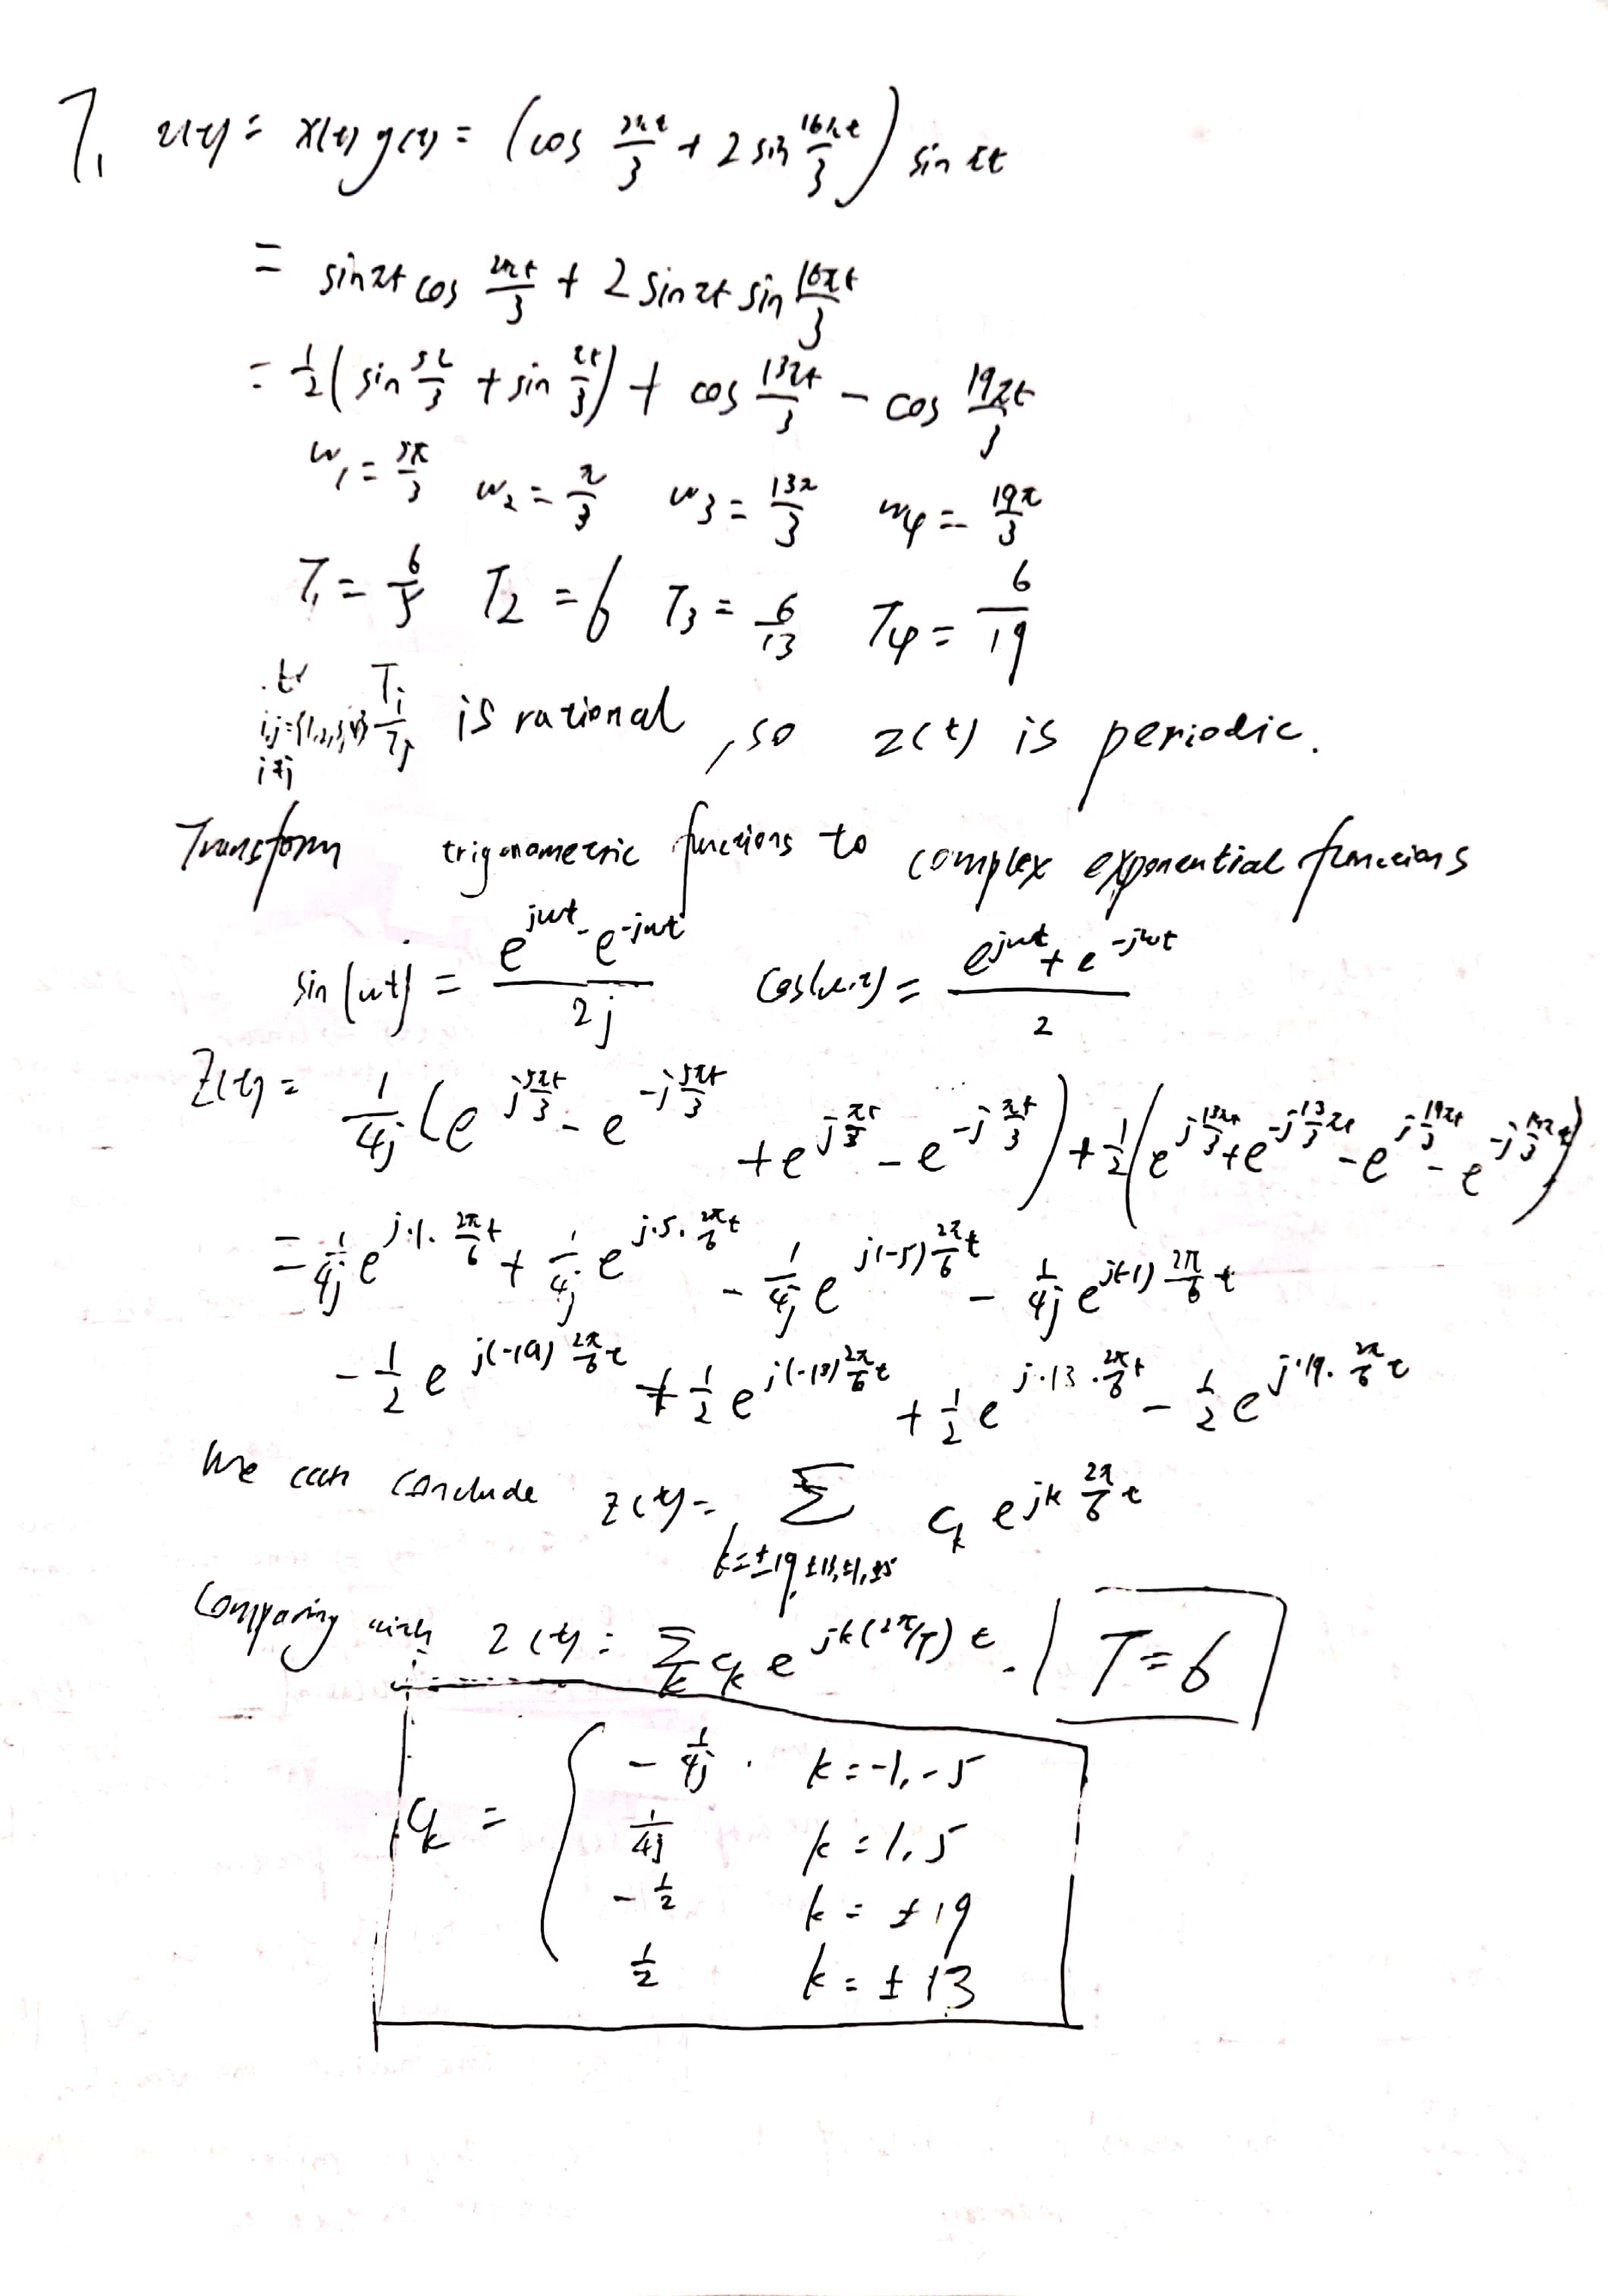 7. z(t) = x(t) y(t) = (cos 2πt/3 + 2 sin 16πt/3) sin πt
= sin πt cos 2πt/3 + 2 sin πt sin 16πt/3
= 1/2 (sin 5π/3 + sin πt/3) + cos 13πt/3 − cos 19πt/3
w₁ = 5π/3 w₂ = π/3 w₃ = 13π/3 w₄ = 19π/3
T₁ = 6/5 T₂ = 6 T₃ = 6/13 T₄ = 6/19
∀ i,j={1,2,3,4} i≠j Tᵢ/Tⱼ is rational, so z(t) is periodic.
Transform trigonometric functions to complex exponential functions
sin(wt) = (e^{jwt} − e^{−jwt})/2j cos(wt) = (e^{jwt} + e^{−jwt})/2
Z(t) = 1/4j (e^{j5πt/3} − e^{−j5πt/3} + e^{jπt/3} − e^{−jπt/3}) + 1/2 (e^{j13πt/3} + e^{−j13/3πt} − e^{j19πt/3} − e^{−j19πt/3})
= 1/4j e^{j·1·2π/6 t} + 1/4j e^{j·5·2π/6 t} − 1/4j e^{j(−5)2π/6 t} − 1/4j e^{j(−1)2π/6 t}
− 1/2 e^{j(−19)2π/6 t} + 1/2 e^{j(−13)2π/6 t} + 1/2 e^{j·13·2π/6 t} − 1/2 e^{j·19·2π/6 t}
We can conclude z(t) = Σ_{k=±19,±13,±1,±5} c_k e^{jk 2π/6 t}
Comparing with z(t) = Σ_k c_k e^{jk(2π/T)t}. T = 6
c_k = { −1/4j . k = −1, −5
1/4j k = 1, 5
−1/2 k = ±19
1/2 k = ±13